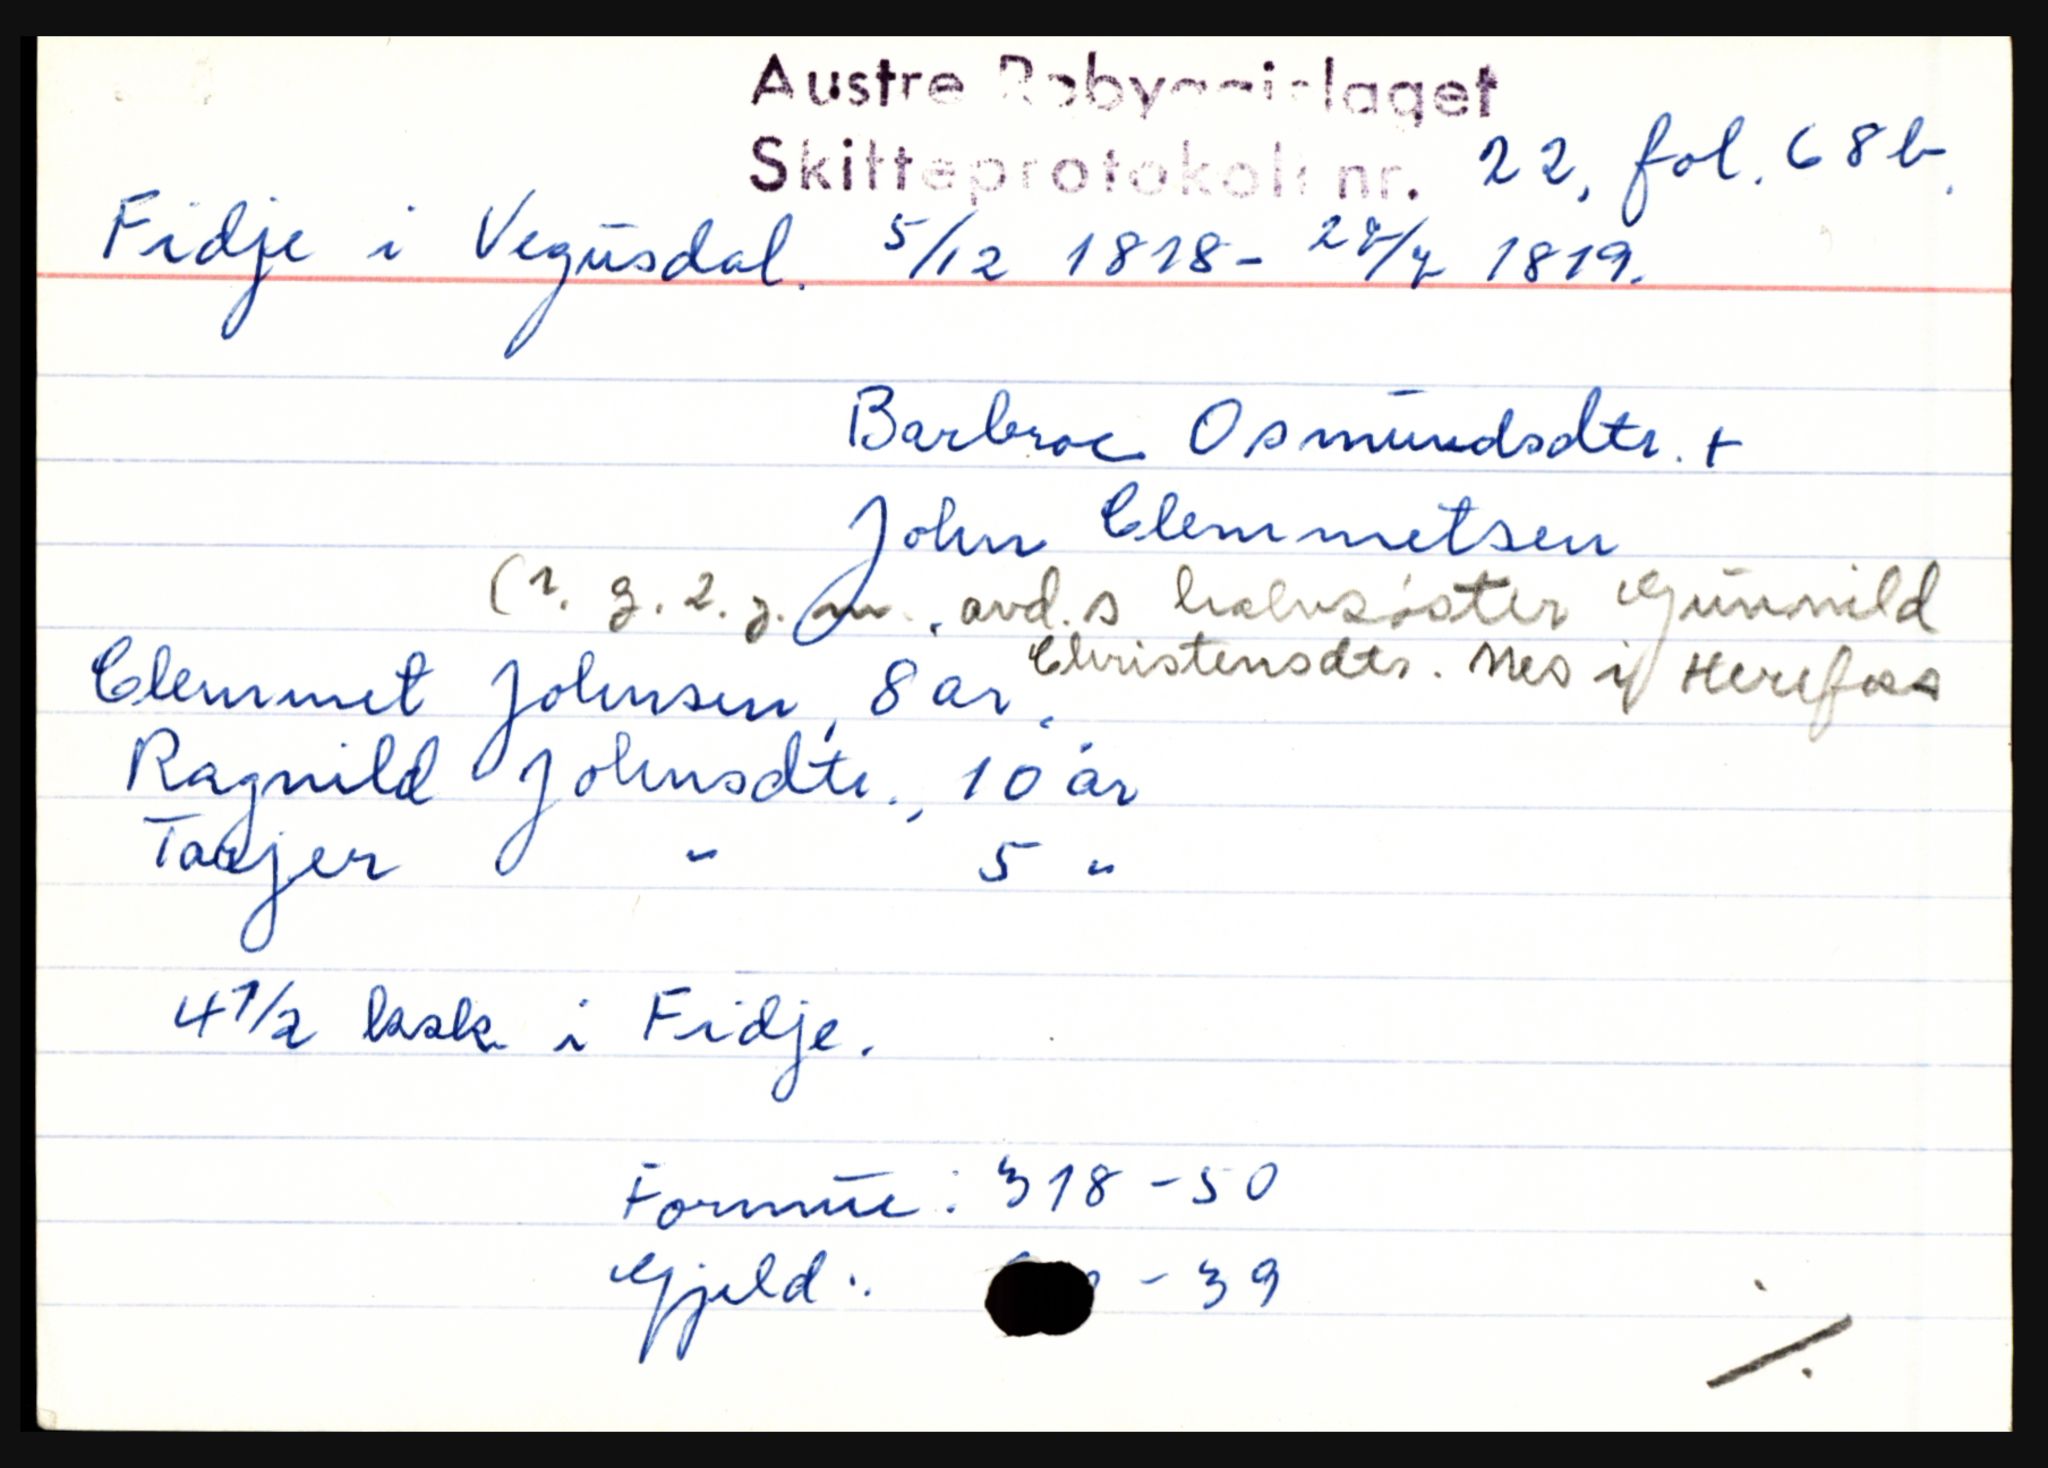 Austre Robyggjelaget
Skifteprotokoll nr. 22, fol. 68b.
Fidje i Vegusdal. 5/12 1818 - 28/7 1819.
Barbroe Osmundsdtr. +
John Clemmetsen
(1. g. 2. g. m. avd.s halvsøster Gunnild
Christensdtr. Nes i Herefoss
Clemmet Johnsen, 8 år.
Ragnild Johnsdtr., 10 år
Taajer " 5 "
4 1/2 kalvsk. i Fidje.
Formue: 318 - 50
Gjeld: - 39